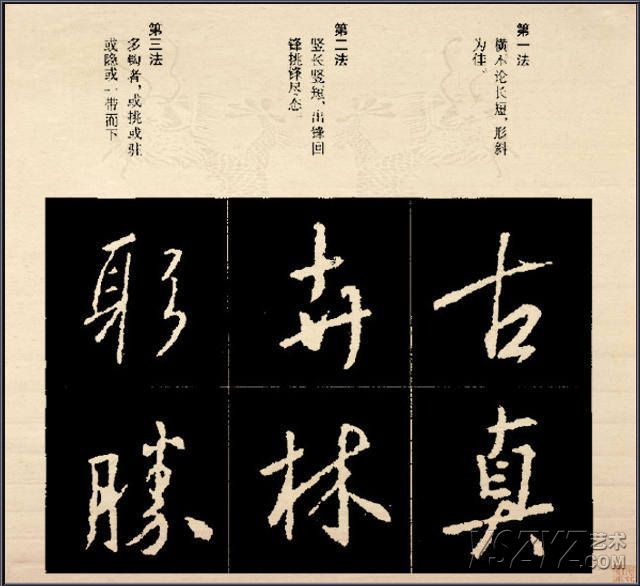 第一法
横不论长短，形斜
为佳。
第二法
竖长竖短，出锋回
锋挑锋尽态。
第三法
多钩者，或挑或驻
或隐或一带而下
古
真
卉
林
躬
勝
YSZYZ艺术
.COM